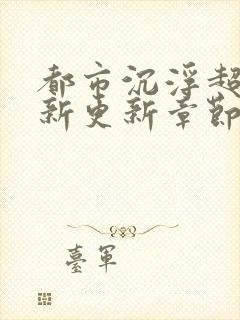 都市沉浮超
新更新章節
臺軍